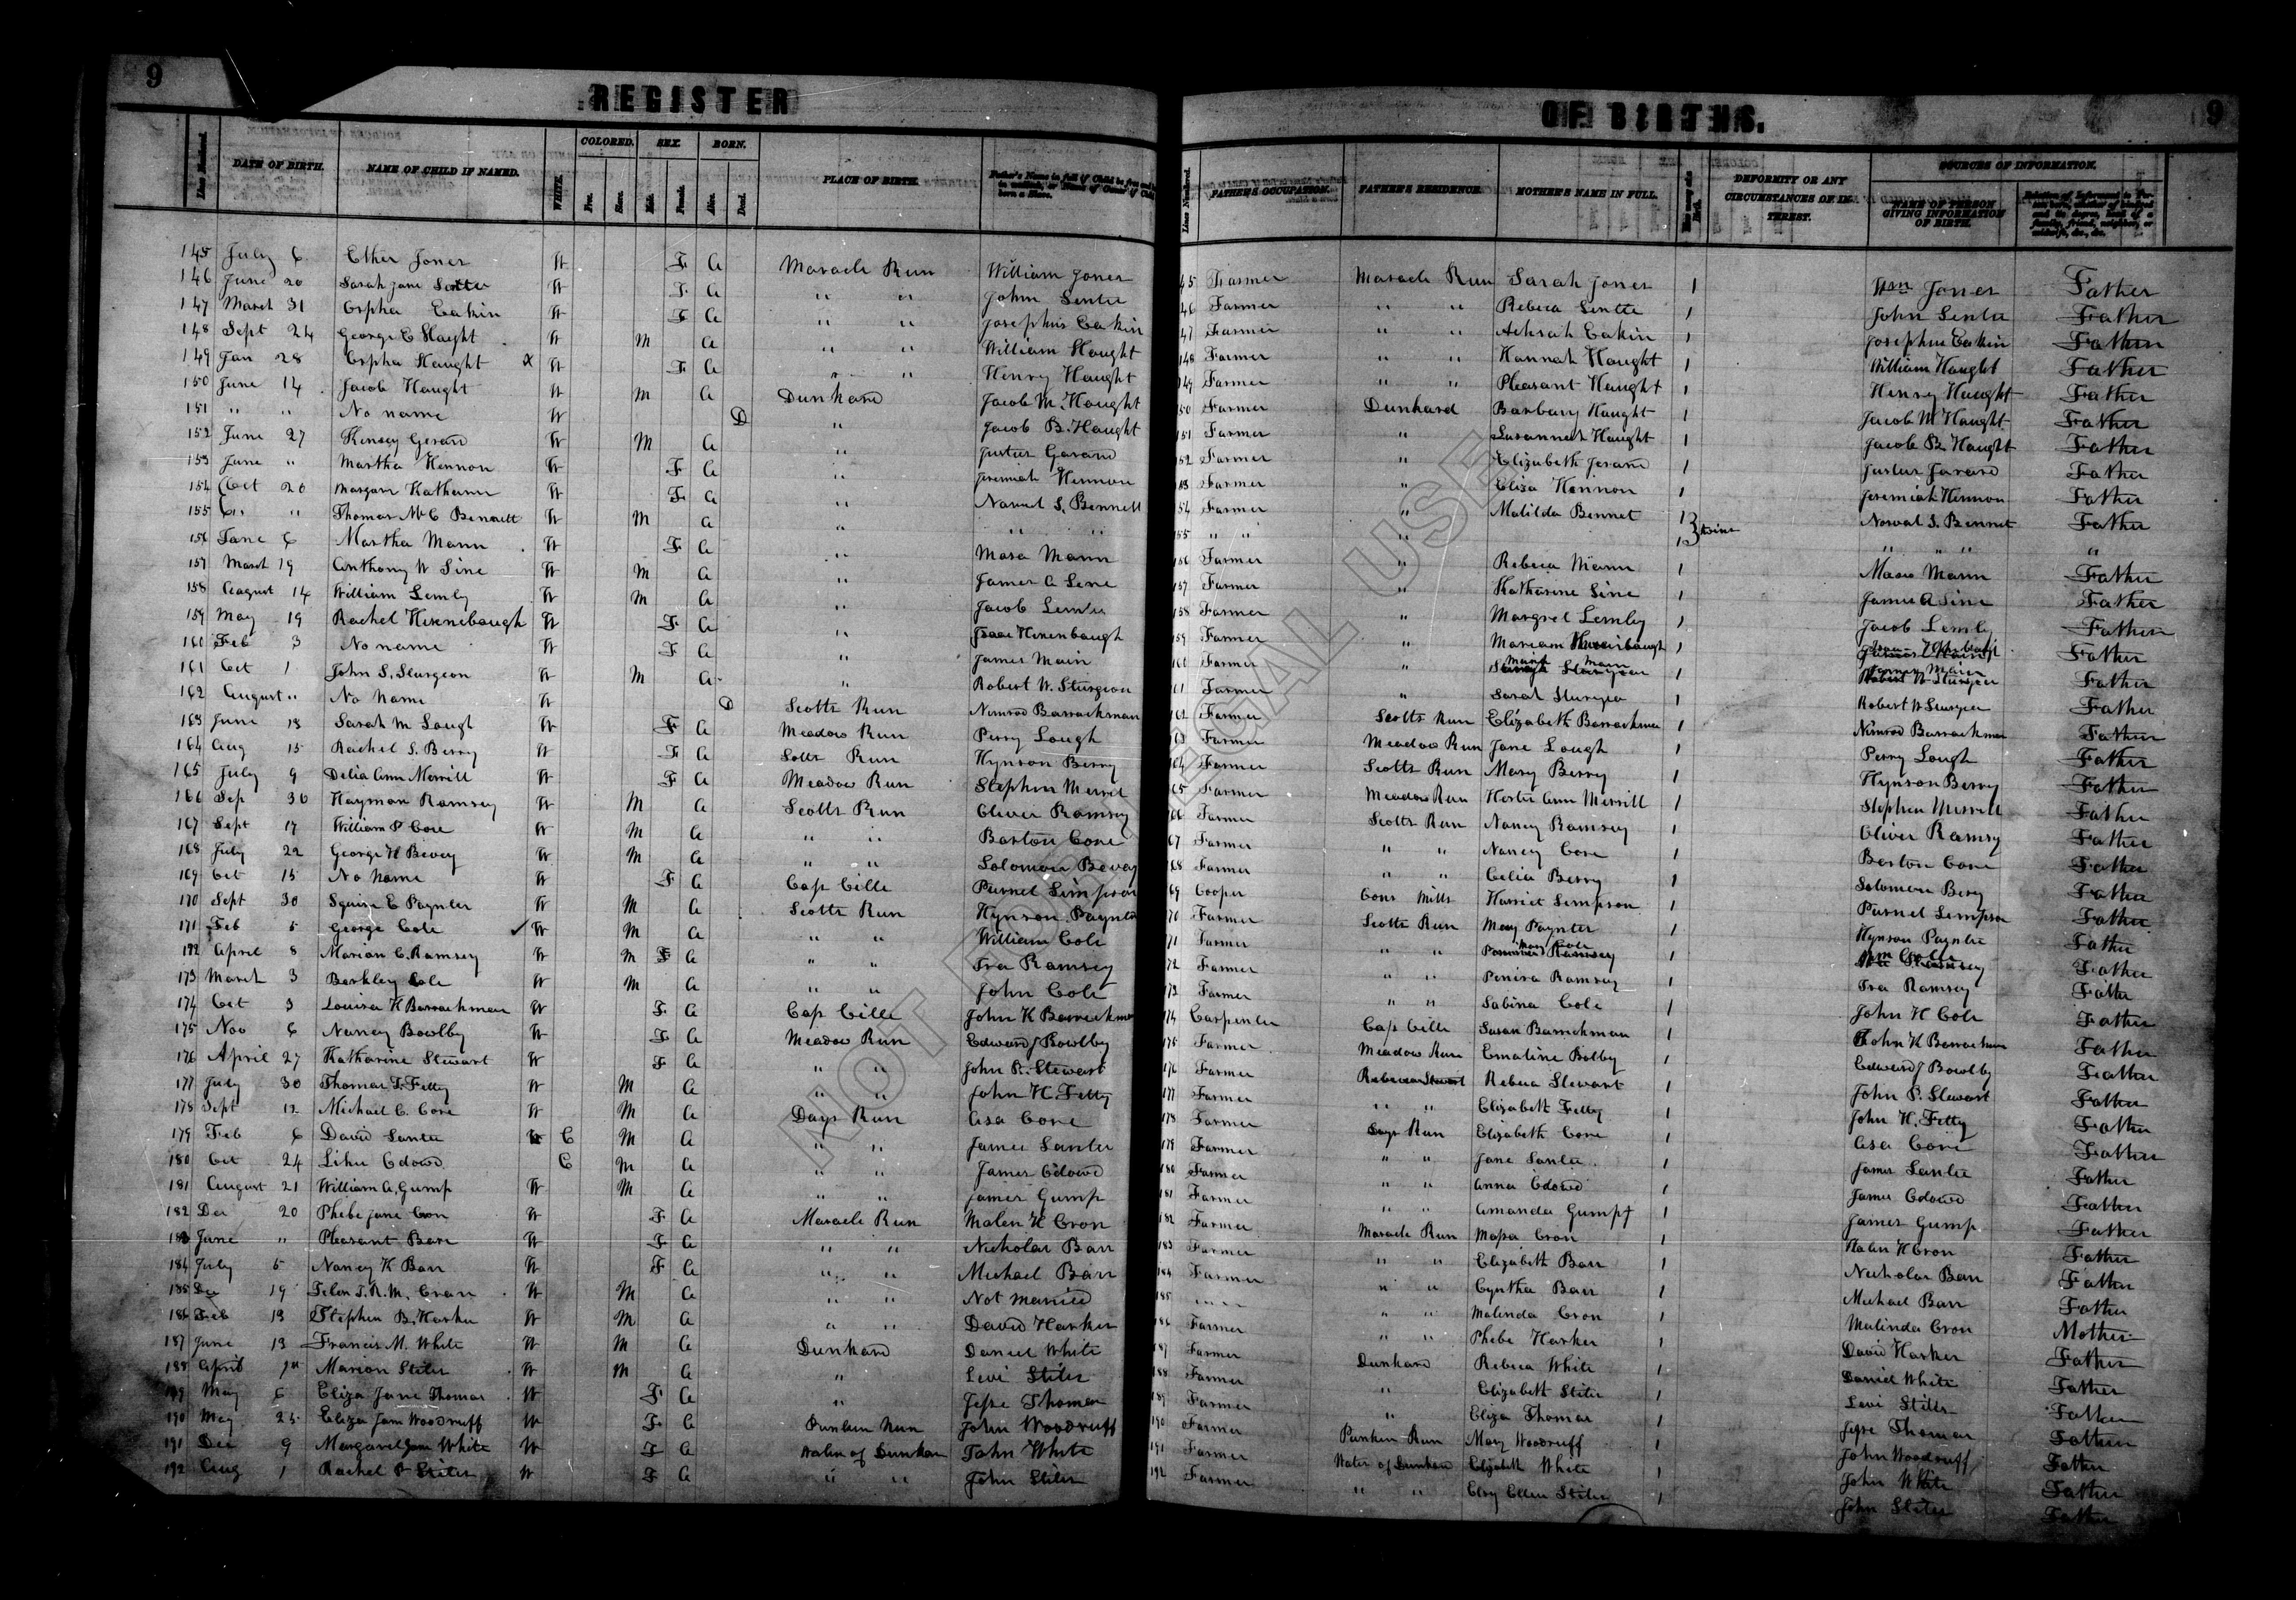 9 REGISTER OF BIRTHS. 9
Line Numbered. DATE OF BIRTH. NAME OF CHILD IF NAMED. WHITE. COLORED. Free. Slave. SEX. Male. Female. BORN. Alive. Dead. PLACE OF BIRTH. FATHER'S OCCUPATION. FATHER'S RESIDENCE. MOTHER'S NAME IN FULL. DEFORMITY OR ANY CIRCUMSTANCES OF INTEREST. SOURCES OF INFORMATION. NAME OF PERSON GIVING INFORMATION OF BIRTH.
145 July 6 Ether Jones W F A Maracle Run William Jones 45 Farmer Maracle Run Sarah Jones 1 Wm Jones Father
146 June 20 Sarah Jane W F A " " John 46 Farmer " " Rebeca 1 John Father
147 March 31 Orpha Eakin W F A " " Josephus Eakin 47 Farmer " " Eakin 1 Josephus Eakin Father
148 Sept 24 George C Haught W M A " " William Haught 148 Farmer " " Hannah Haught 1 William Haught Father
149 Jan 28 Orpha Haught X W F A " " Henry Haught 149 Farmer " " Pleasant Haught 1 Henry Haught Father
150 June 14 Jacob Haught W M A Dunkard Jacob M. Haught 50 Farmer Dunkard Barbary Haught 1 Jacob M Haught Father
151 " " No name W D " Jacob B. Haught 151 Farmer " Susannah Haught 1 Jacob B. Haught Father
152 June 27 Kinsey Gerard W M A " Justus Garard 152 Farmer " Elizabeth Jerard 1 Justus Jarard Father
153 June " Martha Hennon W F A " Jeremiah Hennon 53 Farmer " Eliza Hennon 1 Jeremiah Hennon Father
154 Oct 20 Margaret Katharine W F A " S. Bennett 54 Farmer " Matilda Bennet 1 twins Norval S. Bennet Father
155 " " Thomas Mc C Bennett W M A " " " 155 " " " 1 " " " "
156 June 6 Martha Mann W F A " Masa Mann 156 Farmer " Rebeca Mann 1 Mann Father
157 March 19 Anthony W Sine W M A " James A Sine 157 Farmer " Katharine Sine 1 James A Sine Father
158 August 14 William Lemly W M A " Jacob 158 Farmer " Margret Lemly 1 Jacob Lemly Father
159 May 19 Rachel Hixenbaugh W F A " Isaac Hixenbaugh 159 Farmer " Mariam 1 Father
160 Feb 3 No name W F A " James Main 160 Farmer " Main 1 James Main Father
161 Oct 1 John S. Sturgeon W M A " Robert W. Sturgeon 161 Farmer " Sarah 1 Robert W Father
162 August " No Name W D Scotts Run Nimrod Barrackman 162 Farmer Scotts Run Elizabeth Barrackman 1 Nimrod Barrackman Father
163 June 13 Sarah M Lough W F A Meadow Run Perry Lough 63 Farmer Meadow Run Jane Lough 1 Perry Lough Father
164 Aug 15 Rachel S. Berry W F A Scotts Run Hynson Berry 64 Farmer Scotts Run Mary Berry 1 Hynson Berry Father
165 July 9 Delia Ann Merrill W F A Meadow Run Stephen 65 Farmer Meadow Run Hester Ann Merrill 1 Stephen Merrill Father
166 Sep 30 Hayman Ramsey W M A Scotts Run Oliver Ramsey 66 Farmer Scotts Run Nancy Ramsey 1 Oliver Ramsy Father
167 Sept 17 William P Core W M A " " Barton Core 67 Farmer " " Nancy Core 1 Barton Core Father
168 July 22 George H W M A " " Solomon 168 Farmer " " Celia Berry 1 Solomon Father
169 Oct 15 No Name W F A Cap Cille Purnel Simpson 69 Cooper Cores Mills Harriet Simpson 1 Purnel Simpson Father
170 Sept 30 Squire E Paynter W M A Scotts Run Hynson Paynter 70 Farmer Scotts Run Mary Paynter 1 Hynson Paynter Father
171 Feb 5 George Cole ✓ W M A " " William Cole 71 Farmer " " Mary Cole 1 Wm Cole Father
172 April 8 Marion C. Ramsey W M F A " " Ira Ramsey 72 Farmer " " Ramsey 1 Ira Ramsey Father
173 March 3 Berkley Cole W M A " " John Cole 173 Farmer " " Sabina Cole 1 John H Cole Father
174 Oct 3 Louisa K Barrackman W F A Cap Cille John K Barrackman 174 Carpenter Cap Cille Susan Barrackman 1 John K Barrackman Father
175 Nov 6 Nancy Bowlby W F A Meadow Run Edward J Bowlby 175 Farmer Meadow Run Emaline Bolby 1 Edward J Bowlby Father
176 April 27 Katharine Stewart W F A " " John R. Stewart 176 Farmer Rebeca Stewart 1 John Stewart Father
177 July 30 Thomas F. Fetty W M A " " John H. Fetty 177 Farmer " " Elizabeth Fetty 1 John H. Fetty Father
178 Sept 12 Michael C. Core W M A Days Run Asa Core 178 Farmer Days Run Elizabeth Core 1 Asa Core Father
179 Feb 6 David C M A " " James 179 Farmer " " Jane 1 James Father
180 Oct 24 C M A " " James 180 Farmer " " Anna 1 James Father
181 August 21 William A. Gump W M A " " James Gump 181 Farmer " " Amanda Gump 1 James Gump Father
182 Dec 20 Phebe Jane Cron W F A Maracle Run Malen H Cron 182 Farmer Maracle Run Cron 1 Malen H Cron Father
183 June " Pleasant Barr W F A " " Nicholas Barr 183 Farmer " " Elizabeth Barr 1 Nicholas Barr Father
184 July 5 Nancy K Barr W F A " " Michael Barr 184 Farmer " " Cyntha Barr 1 Michael Barr Father
185 Dec 19 W M A " " Not Married 185 " " Malinda Cron 1 Malinda Cron Mother
186 Feb 13 Stephen B. Harker W M A " " David Harker 186 Farmer " " Phebe Harker 1 David Harker Father
187 June 13 Francis M. White W M A Dunkard Daniel White 187 Farmer Dunkard Rebeca White 1 Daniel White Father
188 April Marion Stiles W M A " Levi Stiles 188 Farmer " Elizabeth Stiles 1 Levi Stiles Father
189 May 6 Eliza Jane Thomas W F A " Jesse Thomas 189 Farmer " Eliza Thomas 1 Jesse Thomas Father
190 May 25 Eliza Jane Woodruff W F A Run John Woodruff 190 Farmer Run Mary Woodruff 1 John Woodruff Father
191 Dec 9 Margaret Jane White W F A Water of Dunkard John White 191 Farmer Water of Dunkard Elizabeth White 1 John White Father
192 Aug 1 Rachel P Stiles W F A " " John Stiles 192 Farmer " " Ellen Stiles 1 John Stiles Father
NOT FOR LEGAL USE